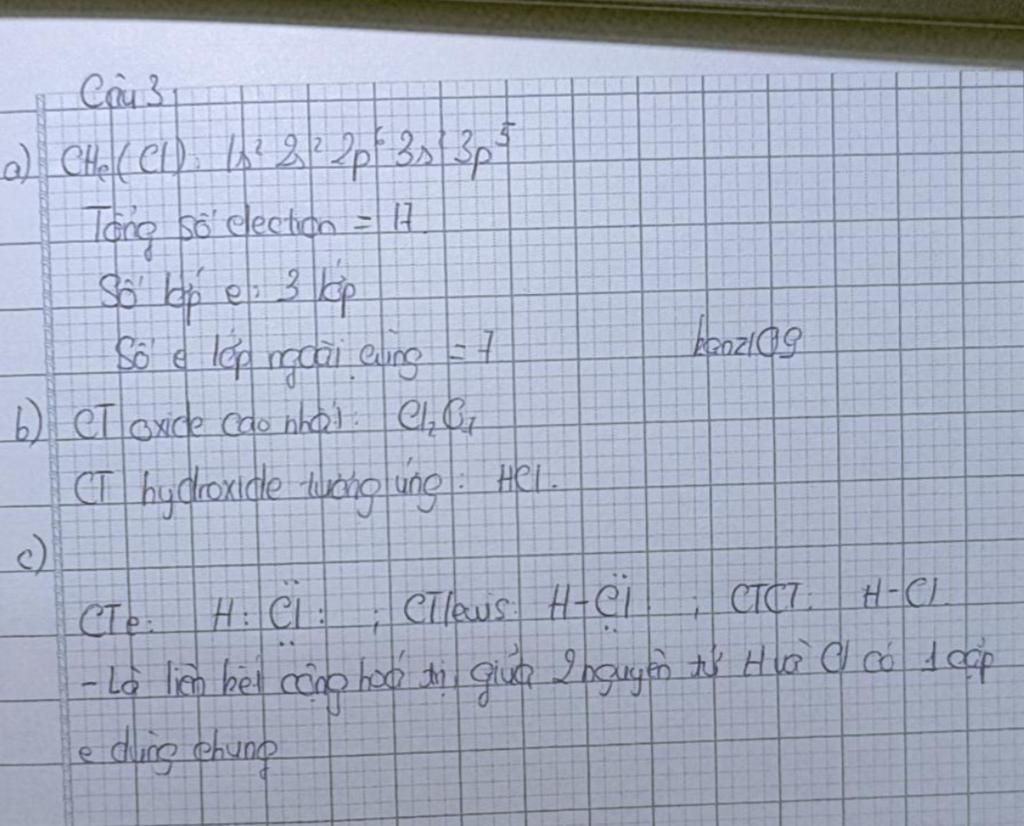 Câu 3
a) CHe (Cl): 1s² 2s² 2p⁶ 3s² 3p⁵
Tổng số electron = 17
Số lớp e: 3 lớp
Số e lớp ngoài cùng = 7
b) CT oxide cao nhất: Cl₂O₇
CT hydroxide tương ứng: HCl.
c)
CTe: H : Cl : ; CT lewis: H - Cl ; CTCT: H - Cl
- Là liên kết cộng hoá trị giữa 2 nguyên tử H và Cl có 1 cặp
e dùng chung